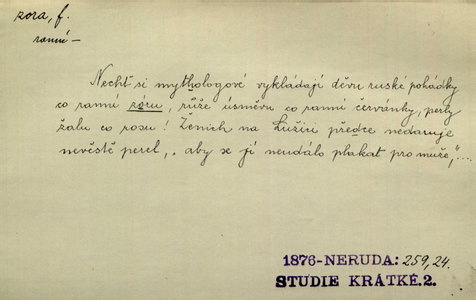 zora, f.
ranní –
Nechť si mythologové vykládají děvu ruske pohádky
co ranní zoru, růže úsměvu co ranní červánky, perly
žalu co rosu! Ženich na Lužici předce nedaruje
nevěstě perel, „aby se jí neudálo plakat pro muže," ....
1876-NERUDA: 259,24.
STUDIE KRÁTKÉ.2.